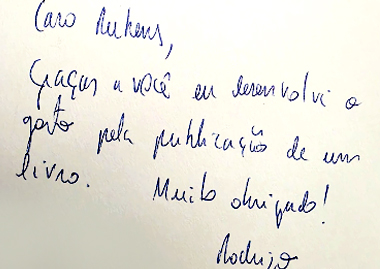 Caro Rubens,
Graças a você eu desenvolvi o
gosto pela publicação de um
livro. Muito obrigado!
Rodrigo